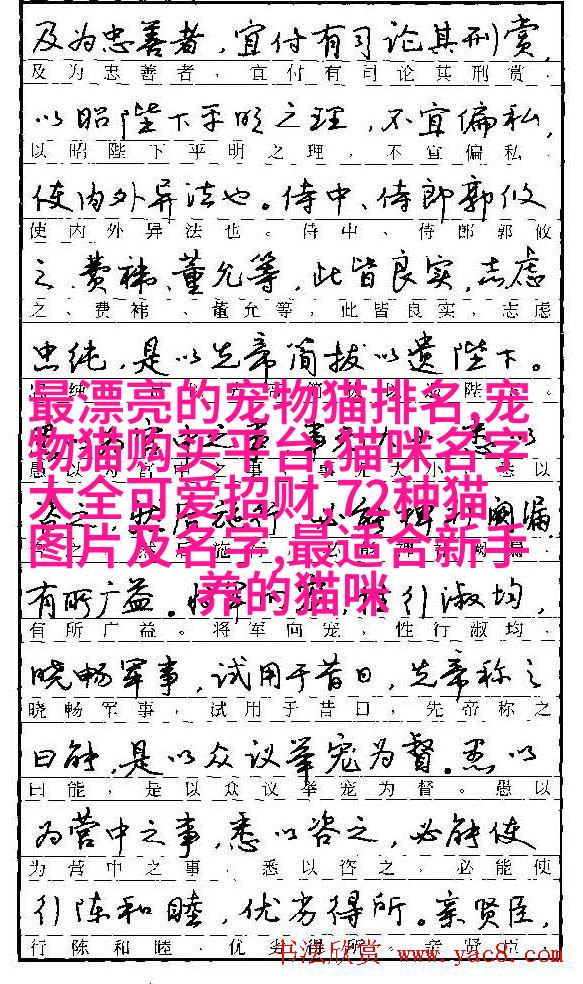 及为忠善者，宜付有司论其刑赏，
及为忠善者，宜付有司论其刑赏，
以昭陛下平明之理，不宜偏私，
以昭陛下平明之理，不宜偏私，
使内外异法也。侍中、侍郎郭攸
使内外异法也。侍中、侍郎郭攸
之、费祎、董允等，此皆良实，志虑
之、费祎、董允等，此皆良实，志虑
忠纯，是以先帝简拔以遗陛下。
最漂亮的宠物猫排名,宠
物猫购买平台,猫咪名字
大全可爱招财,72种猫
图片及名字,最适合新手
养的猫咪
有所广益。将军向宠，性行淑均，
有所广益。将军向宠，性行淑均，
晓畅军事，试用于昔日，先帝称之
晓畅军事，试用于昔日，先帝称之
曰能，是以众议举宠为督。愚以
曰能，是以众议举宠为督。愚以
为营中之事，悉以咨之，必能使
为营中之事，悉以咨之，必能使
行阵和睦，优劣得所。亲贤臣，
行阵和睦，优劣得所。亲贤臣，
书法欣赏 www.yac8.com